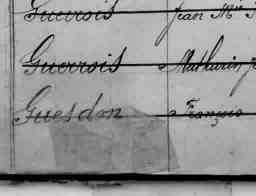 Guerrois Jean Mie
Guerrois Mathurin
Guesdm François